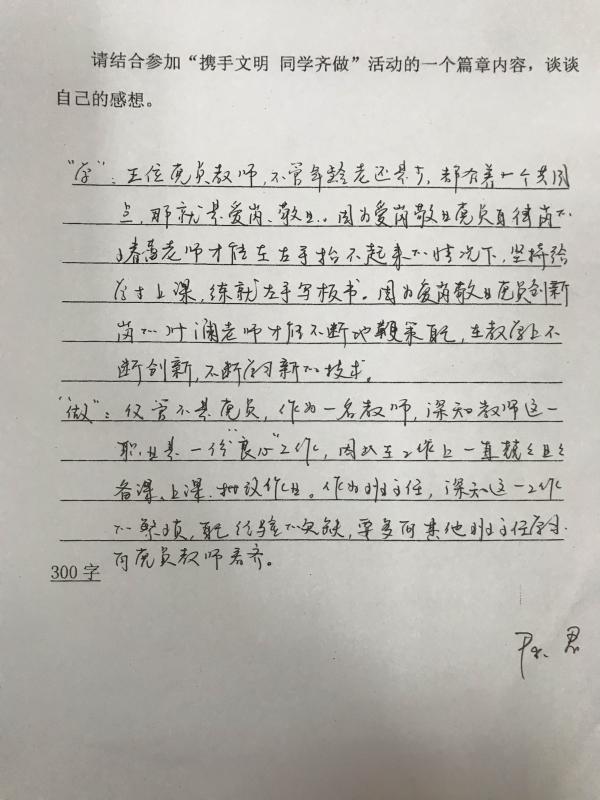 请结合参加“携手文明 同学齐做”活动的一个篇章内容，谈谈
自己的感想。
“学”：五位党员教师，不管年龄老还是少，都有着一个共同
点，那就是爱岗、敬业。因为爱岗敬业党员自律岗的
老师才能在左手抬不起来的情况下，坚持给
学生上课，练就左手写板书。因为爱岗敬业党员创新
岗的叶澜老师才能不断地鞭策自己，在教学上不
断创新，不断学习新的技术。
“做”：仅管不是党员，作为一名教师，深知教师这一
职业是一份“良心”工作，因此在工作上一直兢兢业业
备课、上课、批改作业。作为班主任，深知这一工作
的繁琐，自己经验的欠缺，要多向其他班主任学习。
向党员教师看齐。
300 字
君